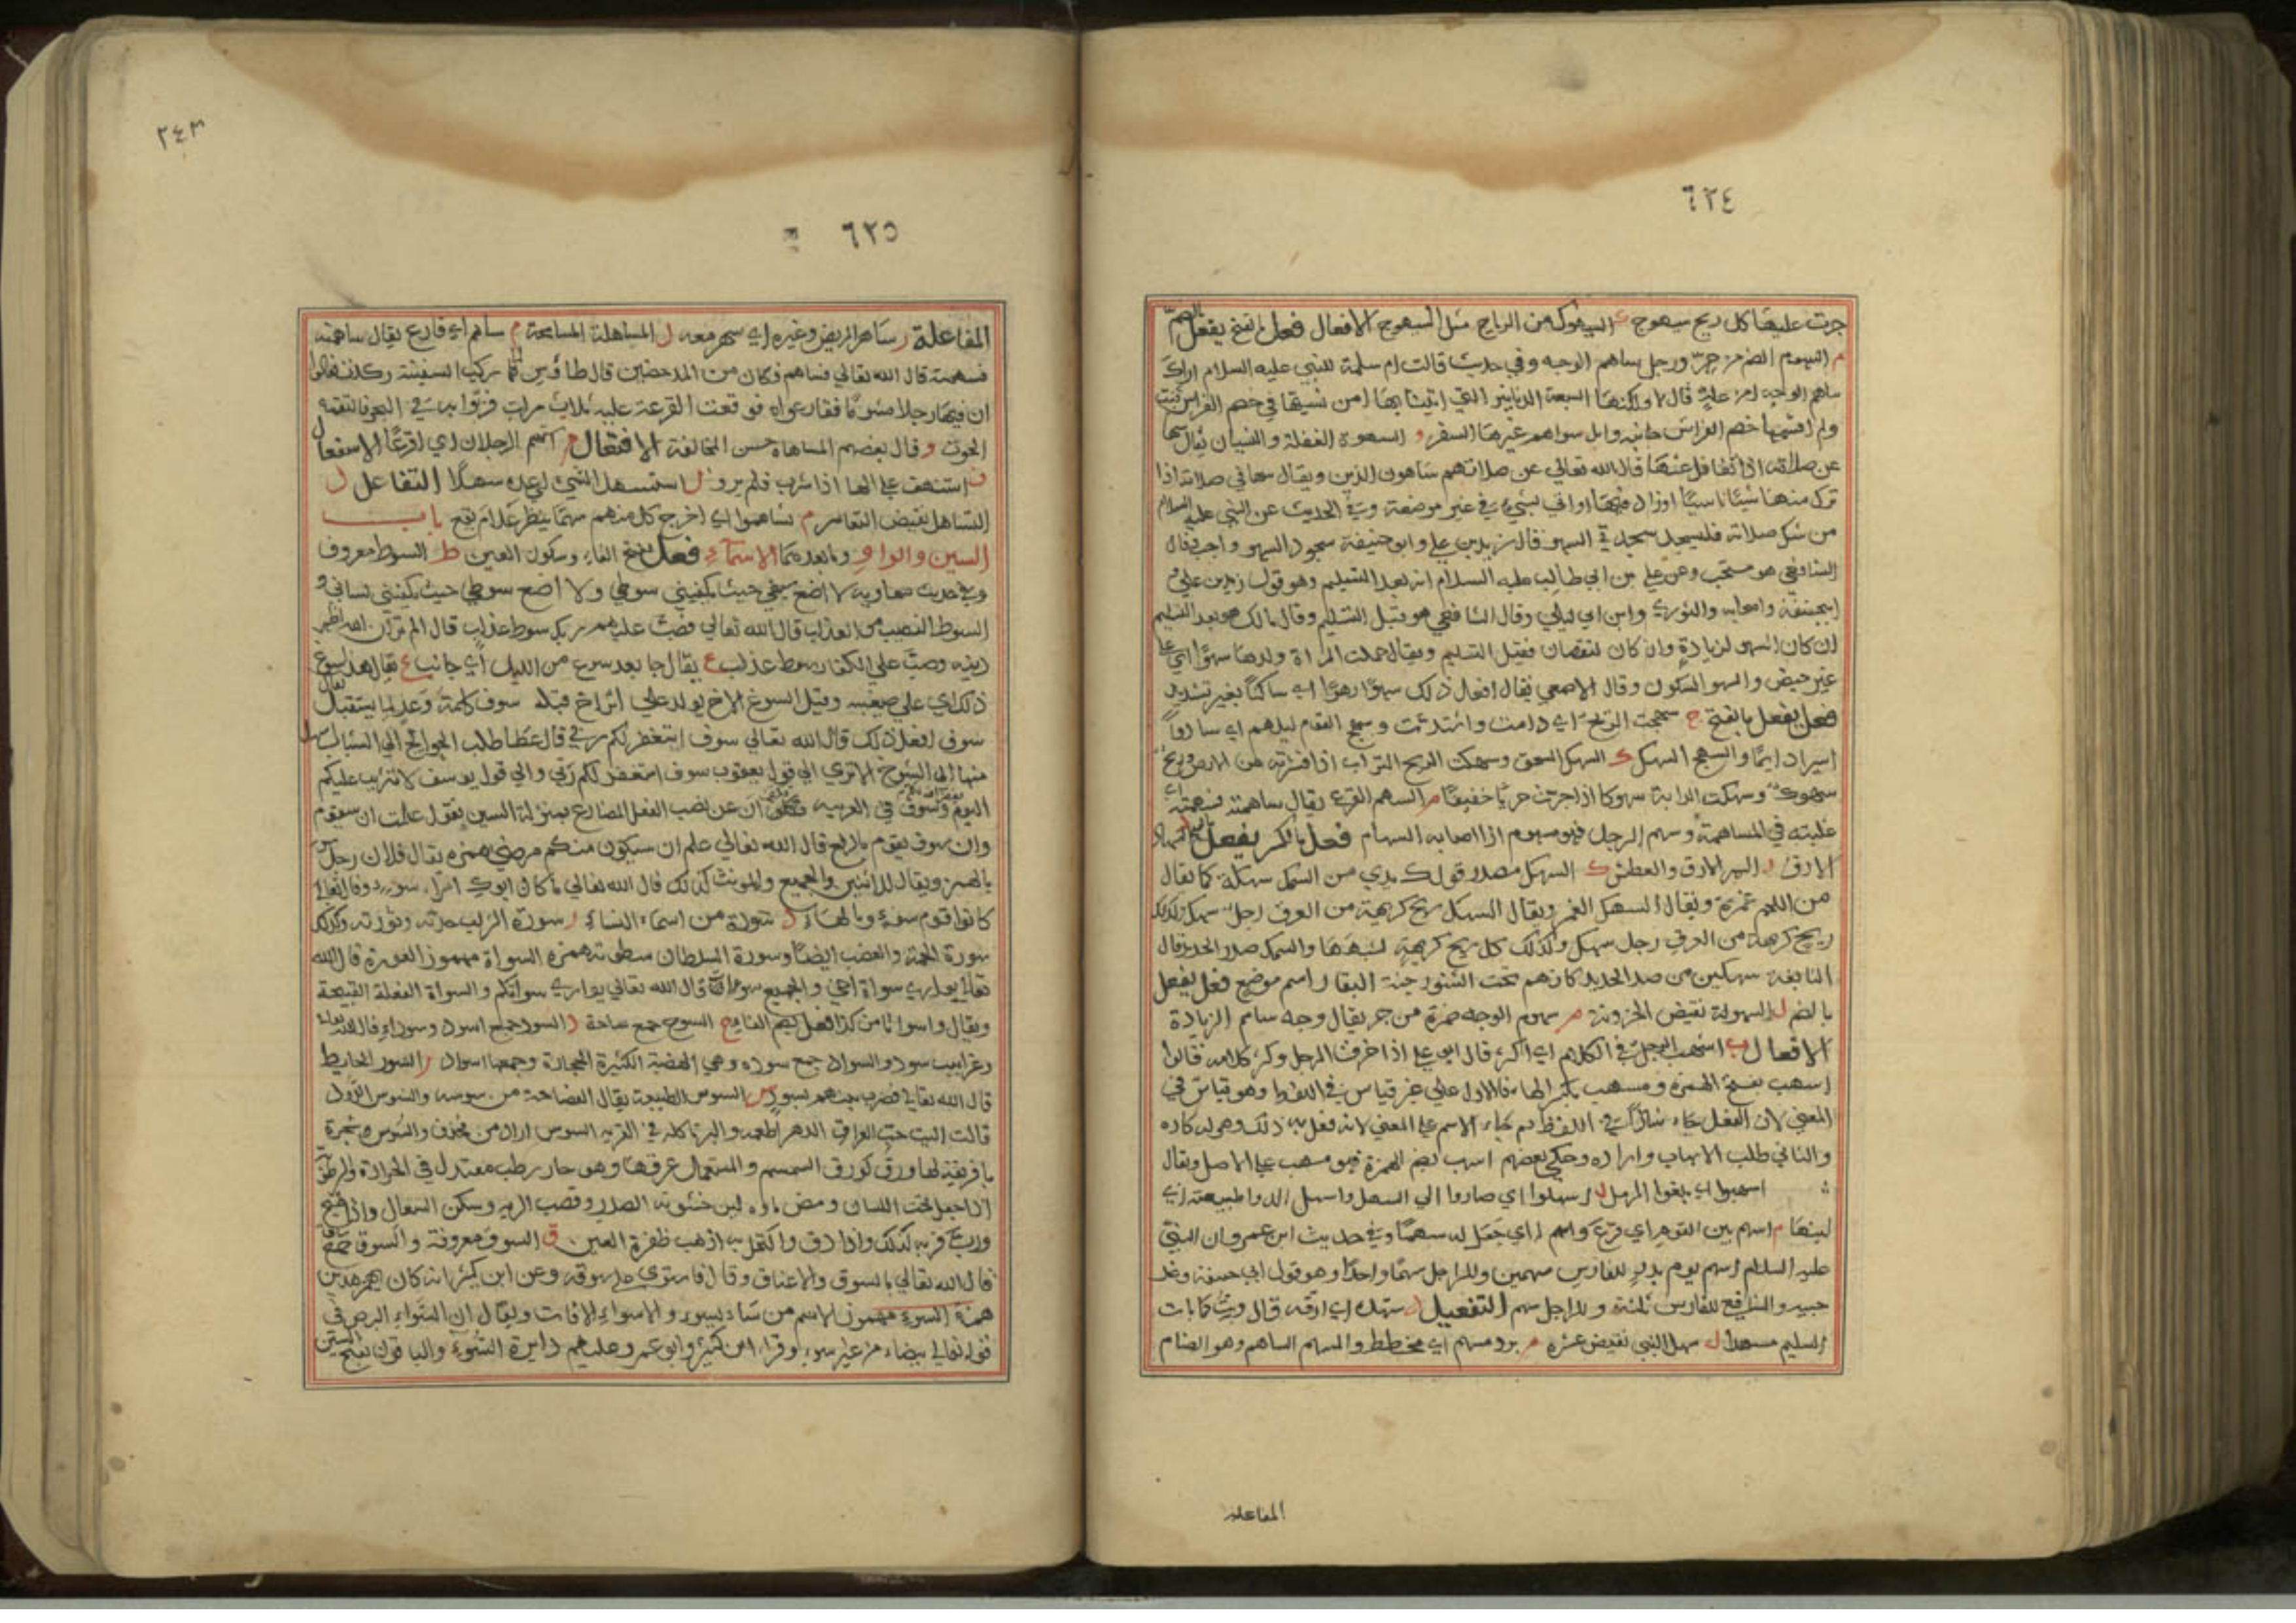 ٦٢٤
جرت عليها كل ريح سيهوج ك السيهوك من الرياح مثل السيهوج الافعال فعل بالفتح يفعل بالضم
م السهوم الضمر ورجل ساهم الوجه وفي حديث قالت ام سلمة للنبي عليه السلام اراك
ساهم الوجه امن علة قال لا ولكنها السبعة الدنانير التي اتينا بها امس نسيتها في خصم الفراش فبت
ولم اقسمها خصم الفراش جانبه وابل سواهم غيرها السفر و السهوة الغفلة والنسيان يقال سها
عن صلاته اذا تغافل عنها قال الله تعالى عن صلاتهم ساهون الذين ويقال سها في صلاته اذا
ترك منها شيئا ناسيا او زاد فيها او اتى بشيء في غير موضعه وفي الحديث عن النبي عليه السلام
من شك في صلاته فليسجد سجدتي السهو قال زيد بن علي وابو حنيفة سجود السهو واجب وقال
الشافعي هو مستحب وعن علي بن ابي طالب عليه السلام انه بعد التسليم وهو قول زيد بن علي و
ابي حنيفة واصحابه والثوري وابن ابي ليلى وقال الشافعي هو قبل التسليم وقال مالك هو بعد التسليم
ان كان السهو لزيادة وان كان لنقصان فقبل التسليم ويقال حملت المراة ولدها سهوا اي على
غير حيض والسهو السكون وقال الاصمعي يقال افعل ذلك سهوا رهوا اي ساكنا بغير تشديد
فعل يفعل بالفتح ج سهجت الريح اي دامت واشتدت وسهج القوم ليلهم اي ساروا
سيرا دايما والسهج السهك ك السهك السحق وسهكت الريح التراب اذا قشرته من الارض وريح
سهوك وسهكت الدابة سهوكا اذا جرت جريا خفيفا م السهم القرع يقال ساهمته فسهمته اي
غلبته في المساهمة وسهم الرجل فهو مسهوم اذا اصابه السهام فعل بالكسر يفعل بالفتح
الارق ر السهر الارق والعطش ك السهك مصدر قولك يدي من السمك سهكة كما يقال
من اللحم غمرة ويقال السهك الغمر ويقال السهك ريح كريهة من العرق رجل سهك وكذلك
ريح كريهة من العرق رجل سهك وكذلك كل ريح كريهة لشبهها والسهك صدا الحديد قال
النابغة سهكين من صدا الحديد كانهم تحت السنور جنة البقار اسم موضع فعل يفعل
بالضم ل السهولة نقيض الحزونة م سهوم الوجه ضمرة من حر يقال وجه ساهم الزيادة
الافعال ب اسهب الرجل في الكلام اي اكثر قال ابو علي اذا خرف الرجل وكثر كلامه قالوا
اسهب بفتح الهمزة ومسهب بكسر الهاء فالاول على غير قياس في اللفظ وهو قياس في
المعنى لان الفعل جاء شاذا في اللفظ ثم جاء الاسم على المعنى لانه فعل به ذلك وهو له كاره
والثاني طلب الاسهاب واراده وحكى بعضهم اسهب بضم الهمزة فهو مسهب على الاصل ويقال
اسهبوا اي بلغوا الرمل ل اسهلوا اي صاروا الى السهل واسهل الدواء طبيعته اي
لينها م اسهم بين القوم اي قرع واسهم له اي جعل له سهما وفي حديث ابن عمر وان النبي
عليه السلام اسهم يوم بدر للفارس سهمين وللراجل سهما واحدا وهو قول ابي حنيفة وعند
والشافعي للفارس ثلثة وللراجل سهم التفعيل د سهده اي ارقه قال وبت كما بات
السليم مسهدا ل سهل الشي نقيض عسره م برد مسهم اي مخطط والمسهم الساهم وهو الضامر
المفاعلة
٢٤٣
٦٢٥
المفاعلة ر ساهر المريض وغيره اي سهر معه ل المساهلة المسامحة م ساهم اي قارع يقال ساهمته
فسهمته قال الله تعالى فساهم فكان من المدحضين قال طاووس لما ركب السفينة ركدت فقالوا
ان فيها رجلا مشوما فقارعواه فوقعت القرعة عليه ثلاث مرات فرموا به في البحر فالتقمه
الحوت و وقال بعضهم المساهاة حسن المخالقة الافتعال م استهم الرجلان اي اقترعا الاستفعال
ف استهف على الماء اذا شرب فلم يرو ل استسهل الشي اي عده سهلا التفاعل ل
التساهل نقيض التعاسر م تساهموا اي اخرج كل منهم سهما ينظر علام يقع باب
السين والواو وما بعدهما الاسماء فعل بفتح الفاء وسكون العين ط السوط معروف
وفي حديث معاوية لا اضع سيفي حيث يكفيني سوطي ولا اضع سوطي حيث يكفيني لساني و
السوط النصيب من العذاب قال الله تعالى فصب عليهم ربك سوط عذاب قال الم تر ان الله اظهر
دينه وصب على الكفار سوط عذاب ع يقال جا بعد سوع من الليل اي جانب غ يقال هذا سوغ
ذلك اي على صيغته وقيل السوغ الاخ يولد على اثر اخ قبله سوف كلمة وعد لما يستقبل يقال
سوف افعل ذلك قال الله تعالى سوف استغفر لكم ربي قال عطا طلب الحوايج الى الشباب اسهل
منها الى الشيوخ الا ترى الى قول يعقوب سوف استغفر لكم ربي والى قول يوسف لا تثريب عليكم
اليوم وسوف في العربية ان عن نصب الفعل المضارع بمنزلة السين يقول علمت ان سيقوم
وان سوف يقوم بالرفع قال الله تعالى علم ان سيكون منكم مرضى همزة يقال فلان رجل سوء
بالهمز ويقال للاثنين والجميع والمونث كذلك قال الله تعالى ما كان ابوك امرا سوء وقال تعالى
كانوا قوم سوء وبالهاء د سودة من اسماء النساء ر سورة الشراب حدته وثورته وكذلك
سورة الحمة والغضب ايضا وسورة السلطان سطوته همزة السواة مهموز العورة قال الله
تعالى يواري سواة اخي والجميع سوات قال الله تعالى يواري سواتكم والسواة الفعلة القبيحة
ويقال واسواتا من كذا فعل بضم الفاء ح السوح جمع ساحة د السود جمع اسود وسوداء قال الله تعالى
وغرابيب سود والسواد جمع سوده وهي الهضبة الكثيرة الحجارة وجمعها اسواد ر السور الحايط
قال الله تعالى فضرب بينهم بسور س السوس الطبيعة يقال الفصاحة من سوسه والسوس الاول
قالت اليت حب العراق الدهر اطعمه والبر ياكله في القرية السوس اراد من والسوس شجرة
بافريقية لها ورق كورق السمسم والمستعمل عرقها وهو حار رطب معتدل في الحرارة والرطوبة
اذا جعل تحت اللسان ومص ماوه لين خشونة الصدر وقصب الرية وسكن السعال واذا طبخ
وربي فربه كذلك واذا دق واكتحل به اذهب ظفرة العين ق السوق معروفة والسوق جمع ساق
قال الله تعالى بالسوق والاعناق وقال فاستوى على سوقه وعن ابن كثير انه كان يهمز هذين
همزة السوء مهموز الاسم من ساء يسوء والاسواء الافات ويقال ان السوء البرص في
قوله تعالى بيضاء من غير سوء وقرا ابن كثير وابو عمرو عليهم دايرة السوء والباقون بفتح السين